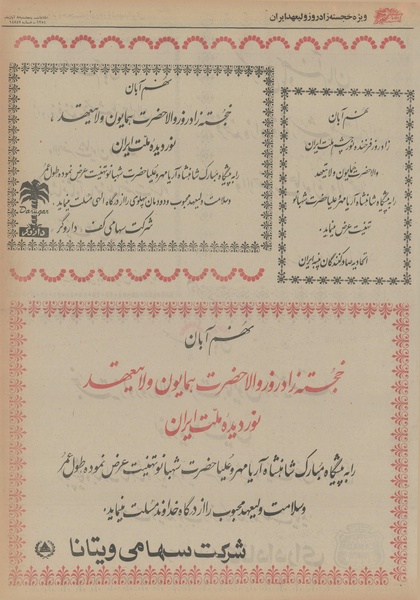 ویژه خجسته زادروز ولیعهد ایران
نهم آبان
زادروز فرخنده
ملت ایران
والاحضرت همایون ولایتعهد
را به پیشگاه شاهنشاه آریامهر و علیاحضرت شهبانو
تهنیت عرض مینماید
اتحادیه صادرکنندگان پنبه ایران
نهم آبان
خجسته زادروز والاحضرت همایون ولایتعهد
نوردیده ملت ایران
را به پیشگاه مبارک شاهنشاه آریامهر و علیاحضرت شهبانو تهنیت عرض نموده طول عمر
و سلامت ولیعهد محبوب و دودمان پهلوی را از درگاه الهی مسئلت مینماید
شرکت سهامی کف . داروگر
Darugar
داروگر
نهم آبان
خجسته زادروز والاحضرت همایون ولایتعهد
نوردیده ملت ایران
را به پیشگاه مبارک شاهنشاه آریامهر و علیاحضرت شهبانو تهنیت عرض نموده طول عمر
و سلامت ولیعهد محبوب را از درگاه خداوند مسئلت مینماید.
شرکت سهامی ویتانا